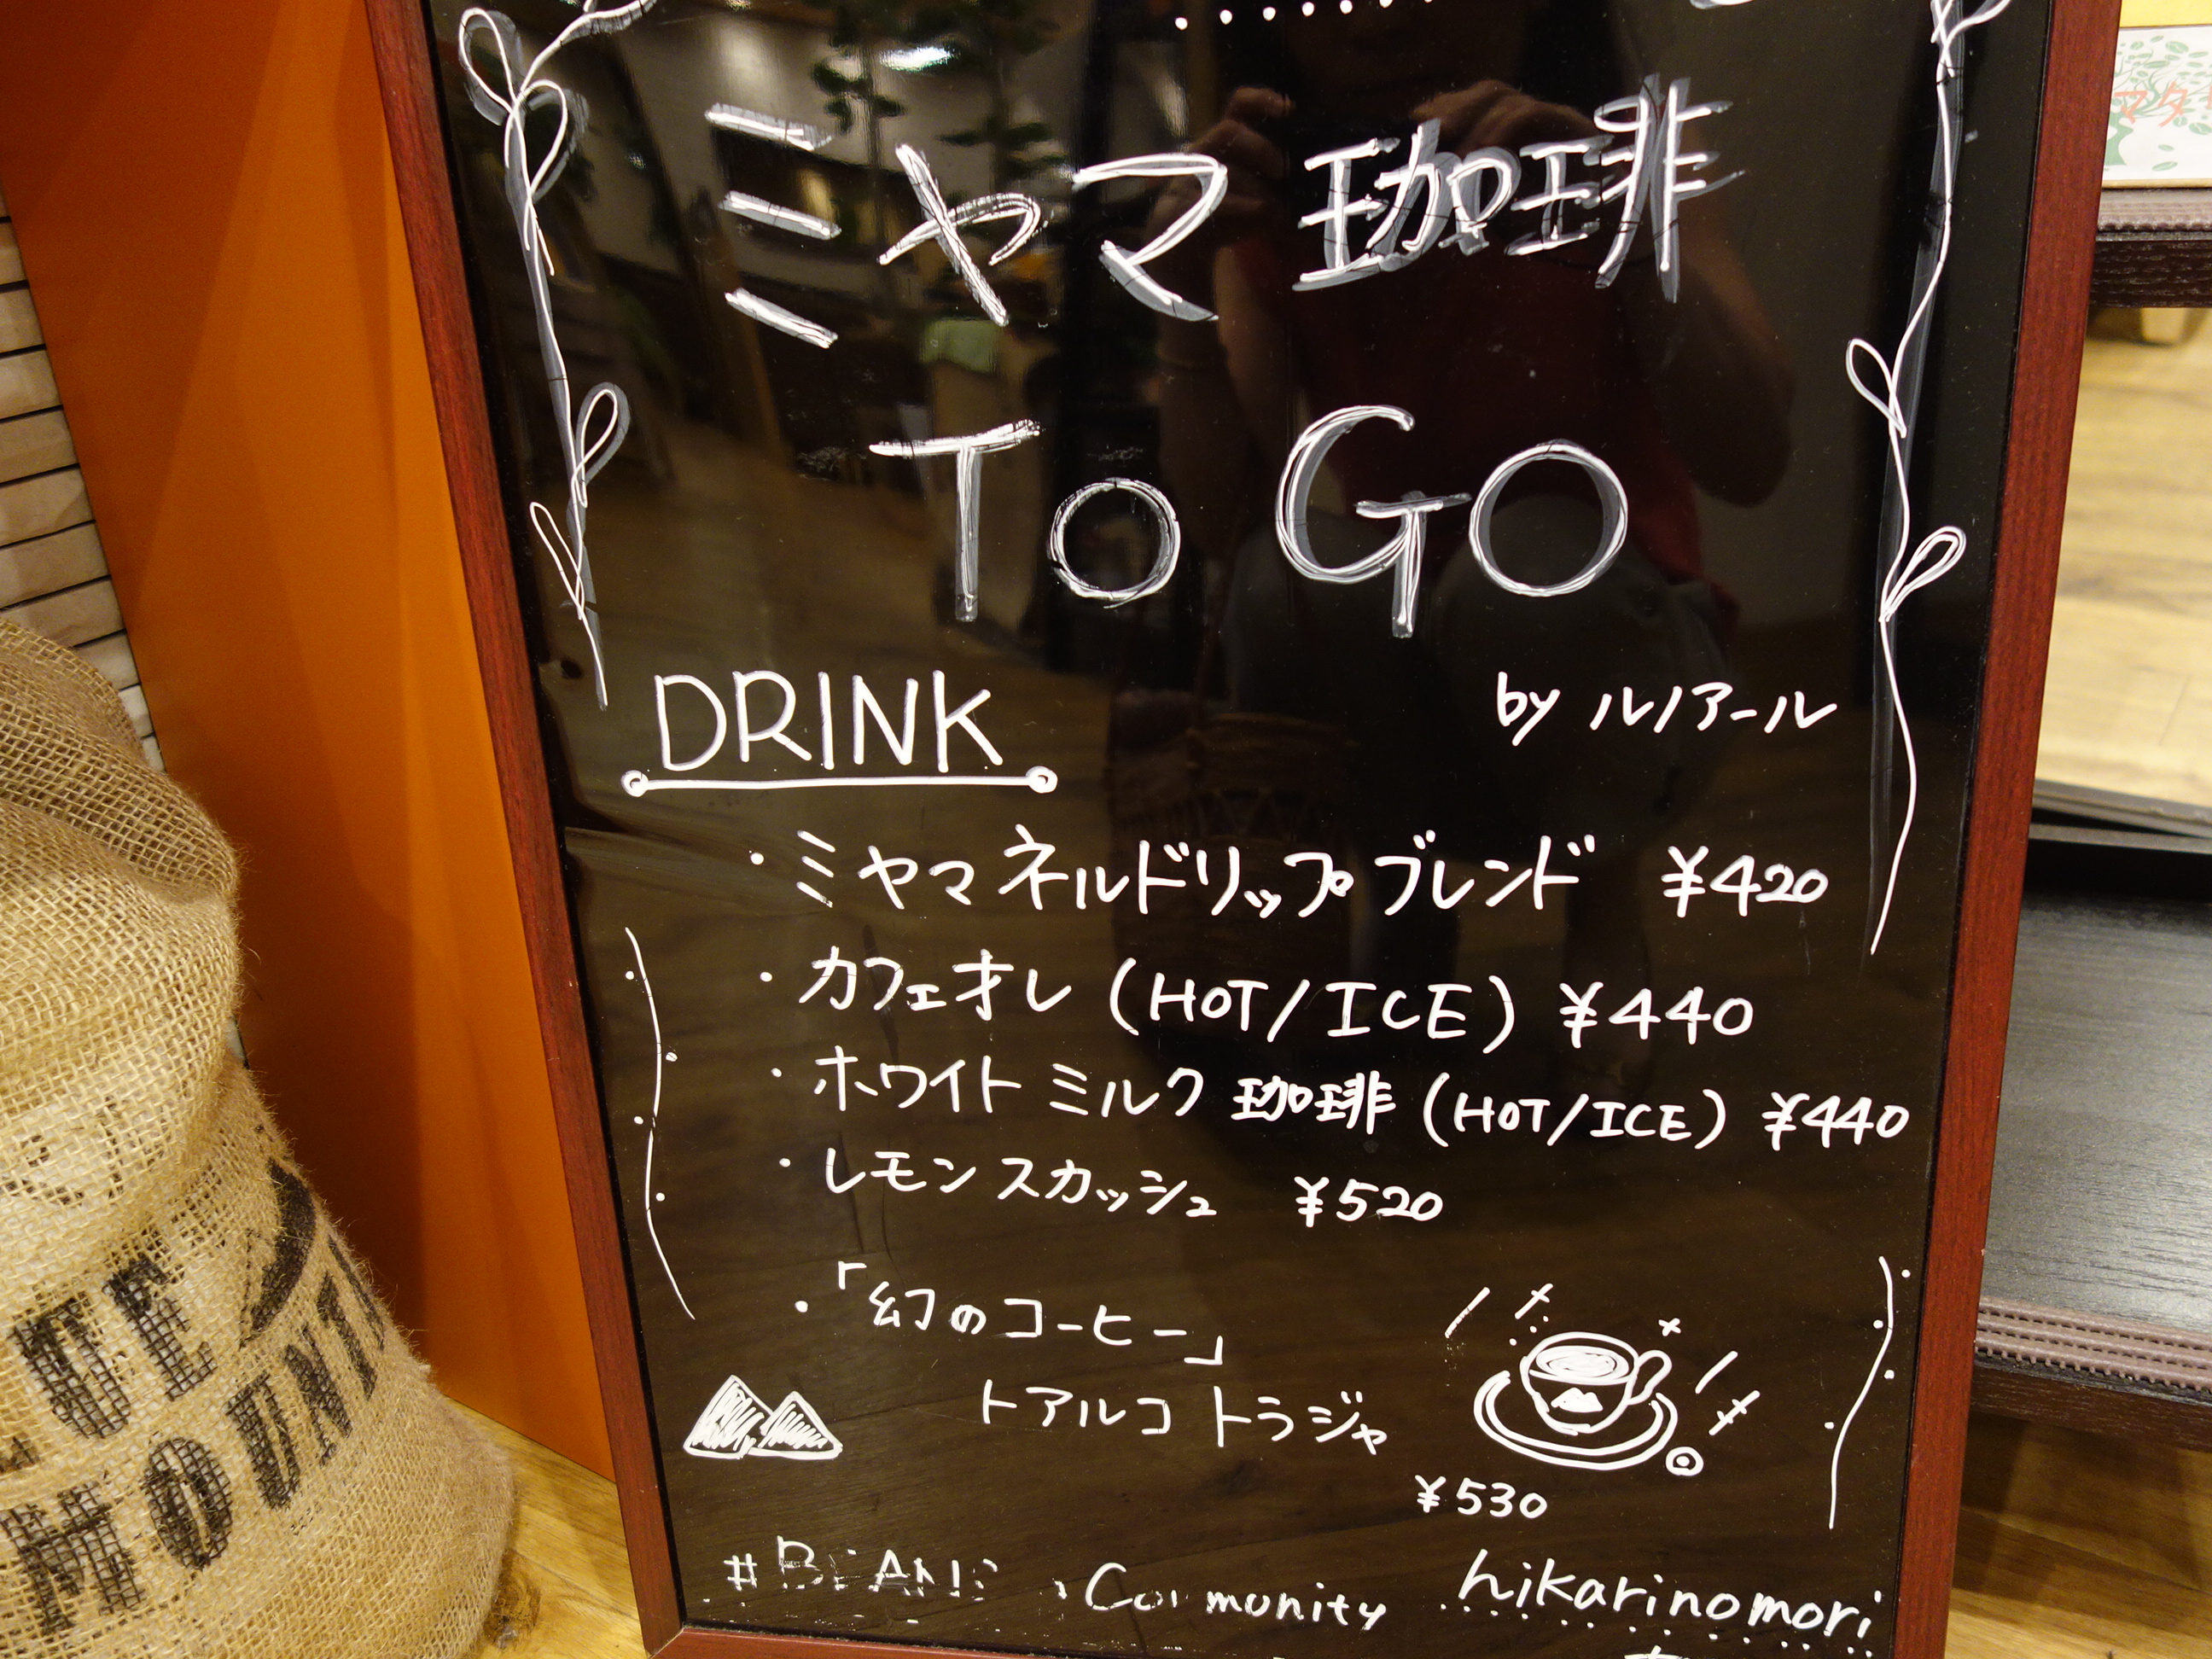 ミヤマ珈琲
TO GO
DRINK
by ルノアール
・ミヤマネルドリップブレンド ¥420
・カフェオレ (HOT/ICE) ¥440
・ホワイトミルク珈琲 (HOT/ICE) ¥440
・レモンスカッシュ ¥520
・「幻のコーヒー」
トアルコ トラジャ
¥530
hikarinomori
MOUNT